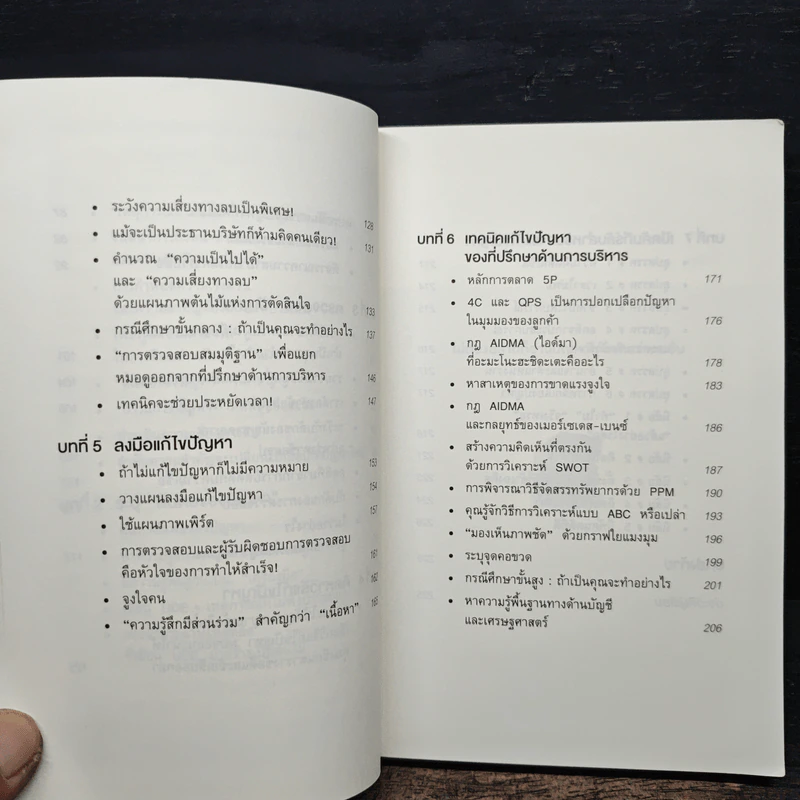 • ระวังความเสี่ยงทางลบเป็นพิเศษ! 128
• แม้จะเป็นประธานบริษัทก็ห้ามคิดคนเดียว! 131
• คำนวณ “ความเป็นไปได้”
และ “ความเสี่ยงทางลบ”
ด้วยแผนภาพต้นไม้แห่งการตัดสินใจ 133
• กรณีศึกษาขั้นกลาง : ถ้าเป็นคุณจะทำอย่างไร 137
• “การตรวจสอบสมมุติฐาน” เพื่อแยก
หมอดูออกจากที่ปรึกษาด้านการบริหาร 146
• เทคนิคจะช่วยประหยัดเวลา! 147
บทที่ 5 ลงมือแก้ไขปัญหา
• ถ้าไม่แก้ไขปัญหาก็ไม่มีความหมาย 153
• วางแผนลงมือแก้ไขปัญหา 154
• ใช้แผนภาพเพิร์ต 157
• การตรวจสอบและผู้รับผิดชอบการตรวจสอบ
คือหัวใจของการทำให้สำเร็จ! 161
• จูงใจคน 162
• “ความรู้สึกมีส่วนร่วม” สำคัญกว่า “เนื้อหา” 165
บทที่ 6 เทคนิคแก้ไขปัญหา
ของที่ปรึกษาด้านการบริหาร
• หลักการตลาด 5P 171
• 4C และ QPS เป็นการปอกเปลือกปัญหา
ในมุมมองของลูกค้า 176
• กฎ AIDMA (ไอด์มา)
ที่อะมะโนะฮะชิดะเตะคืออะไร 178
• หาสาเหตุของการขาดแรงจูงใจ 183
• กฎ AIDMA
และกลยุทธ์ของเมอร์เซเดส-เบนซ์ 186
• สร้างความคิดเห็นที่ตรงกัน
ด้วยการวิเคราะห์ SWOT 187
• การพิจารณาวิธีจัดสรรทรัพยากรด้วย PPM 190
• คุณรู้จักวิธีการวิเคราะห์แบบ ABC หรือเปล่า 193
• “มองเห็นภาพชัด” ด้วยกราฟใยแมงมุม 196
• ระบุจุดคอขวด 199
• กรณีศึกษาขั้นสูง : ถ้าเป็นคุณจะทำอย่างไร 201
• หาความรู้พื้นฐานทางด้านบัญชี
และเศรษฐศาสตร์ 206